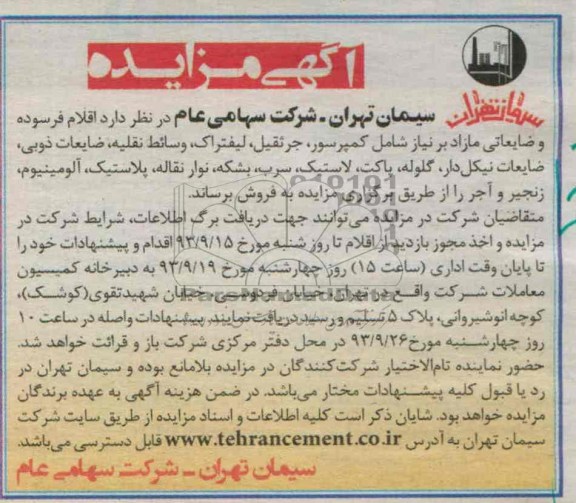 آگهی مزایده
سیمان تهران
سیمان تهران ـ شرکت سهامی عام در نظر دارد اقلام فرسوده
و ضایعاتی مازاد بر نیاز شامل کمپرسور، جرثقیل، لیفتراک، وسائط نقلیه، ضایعات ذوبی،
ضایعات نیکل‌دار، گلوله، پاکت، لاستیک، سرب، بشکه، نوار نقاله، پلاستیک، آلومینیوم،
زنجیر و آجر را از طریق برگزاری مزایده به فروش برساند.
متقاضیان شرکت در مزایده می‌توانند جهت دریافت برگ اطلاعات، شرایط شرکت در
مزایده و اخذ مجوز بازدید از اقلام تا روز شنبه مورخ ۹۳/۹/۱۵ اقدام و پیشنهادات خود را
تا پایان وقت اداری (ساعت ۱۵) روز چهارشنبه مورخ ۹۳/۹/۱۹ به دبیرخانه کمیسیون
معاملات شرکت واقع در تهران، خیابان فردوسی، خیابان شهیدتقوی(کوشک)،
کوچه انوشیروانی، پلاک ۵ تسلیم و رسید دریافت نمایند. پیشنهادات واصله در ساعت ۱۰
روز چهارشنبه مورخ ۹۳/۹/۲۶ در محل دفتر مرکزی شرکت باز و قرائت خواهد شد.
حضور نماینده تام‌الاختیار شرکت‌کنندگان در مزایده بلامانع بوده و سیمان تهران در
رد یا قبول کلیه پیشنهادات مختار می‌باشد. در ضمن هزینه آگهی به عهده برندگان
مزایده خواهد بود. شایان ذکر است کلیه اطلاعات و اسناد مزایده از طریق سایت شرکت
سیمان تهران به آدرس www.tehrancement.co.ir قابل دسترسی می‌باشد
سیمان تهران ـ شرکت سهامی عام